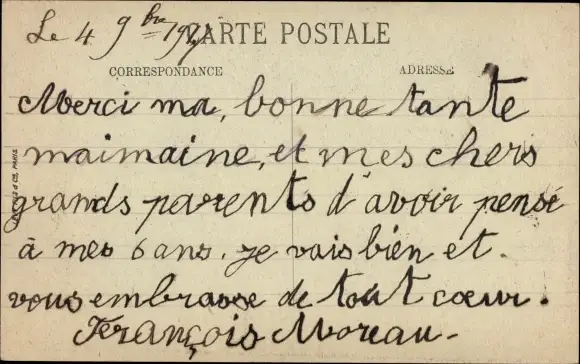 Le 4 9bre
CARTE POSTALE
CORRESPONDANCE
ADRESSE
Merci ma, bonne tante
maimaine, et mes chers
grands parents d'avoir pensé
à mes 6 ans. je vais bien et
vous embrasse de tout cœur.
François Moreau.